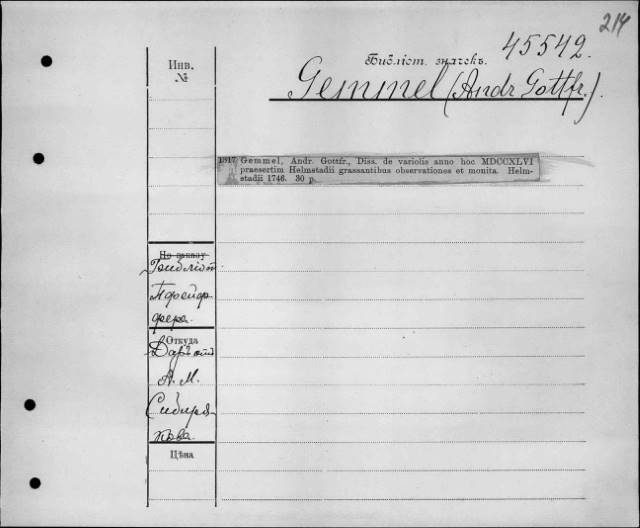 214
45542.
Библіот. значекъ.
Gemmel (Andr. Gottfr.)
Инв.
№
1317 Gemmel, Andr. Gottfr., Diss. de variolis anno hoc MDCCXLVI
praesertim Helmstadii grassantibus observationes et monita. Helm-
stadii 1746. 30 p.
По заказу
Библіот.
Пфейф-
фера
Откуда
Даръ отъ
А. М.
Сибиря-
кова
Цѣна